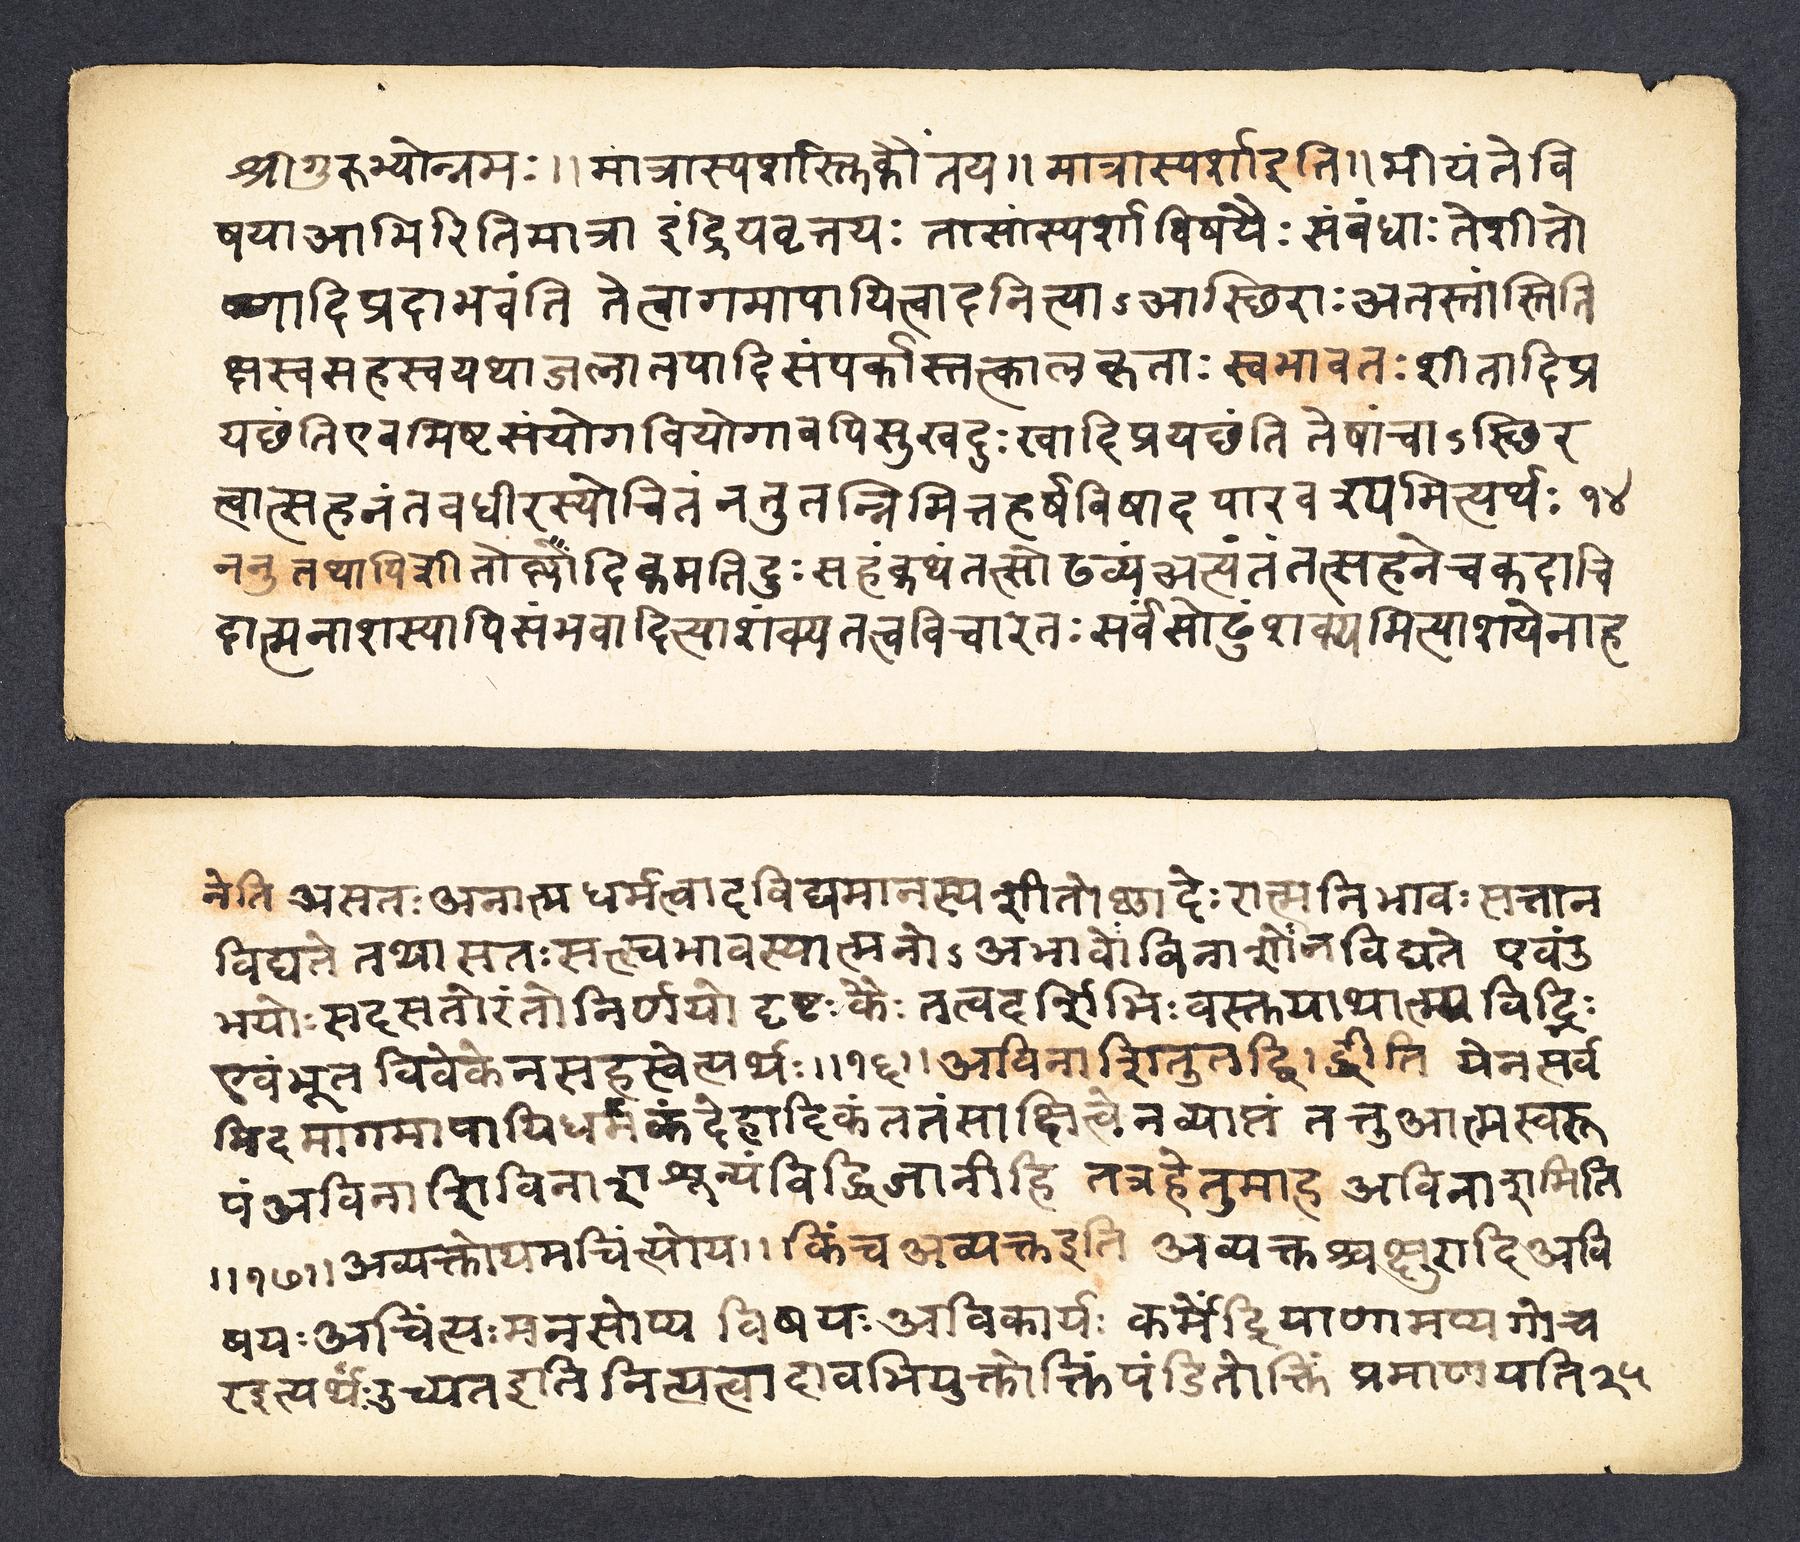 श्रीगुरुभ्योन्नमः॥मात्रास्पर्शास्तिकौंतय॥मात्रास्पर्शाइति॥मीयंतेवि
षयाआभिरितिमात्रा इंद्रियवृत्तयः तासांस्पर्शाविषयैः संबंधाः तेशीतो
ष्णादिप्रदाभवंति तेत्वागमापायित्वादनित्याऽआस्छिराः अतस्तांस्तिति
क्षस्वसहस्वयथाजलातपादिसंपर्कास्तत्कालकृताः स्वभावतः शीतादिप्र
यछंतिएवमिष्टसंयोगवियोगावपिसुखदुःखादिप्रयछंति तेषांचाऽस्छिर
त्वात्सहनंतवधीरस्योचितं नतुतन्निमित्तहर्षविषादपारवश्यमित्यर्थः १४
ननु तथापिशीतोष्णादिकमतिदुःसहंकथंतत्सोढव्यंअत्यंतंतत्सहनेचकदाचि
दात्मनाशस्यापिसंभवादित्याशंक्यतत्वविचारतः सर्वंसोढुंशक्यमित्याशयेनाह
नेति असतः अनात्मधर्मत्वादविद्यमानस्यशीतोष्णादेः रात्मनिभावः सत्तान
विद्यते तथासतः सत्स्वभावस्यात्मनोऽअभावोविनाशोनविद्यते एवंउ
भयोः सदसतोरंतोनिर्णयो दृष्टः कैः तत्वदर्शिभिः वस्तुयाथात्म्यविद्भिः
एवंभूतविवेकेनसहस्वेत्यर्थः॥१६॥अविनाशितुतद्धि।द्धीति येनसर्व
मिदमागमापायिधर्मकंदेहादिकंततंसाक्षित्वेनव्याप्तं तत्तुआत्मस्वरू
पंअविनाशिविनाशशून्यंविद्धिजानीहि तत्रहेतुमाह अविनाशमिति
॥१७॥अव्यक्तोयमचिंत्योय॥किंचअव्यक्तइति अव्यक्तश्चक्षुरादिअवि
षयः अचिंत्यः मनसोप्यविषयः अविकार्यः कर्मेंद्रियाणामप्यगोच
रइत्यर्थः उच्यतइति नित्यत्वादावभियुक्तोक्तिंपंडितोक्तिं प्रमाणयति२५